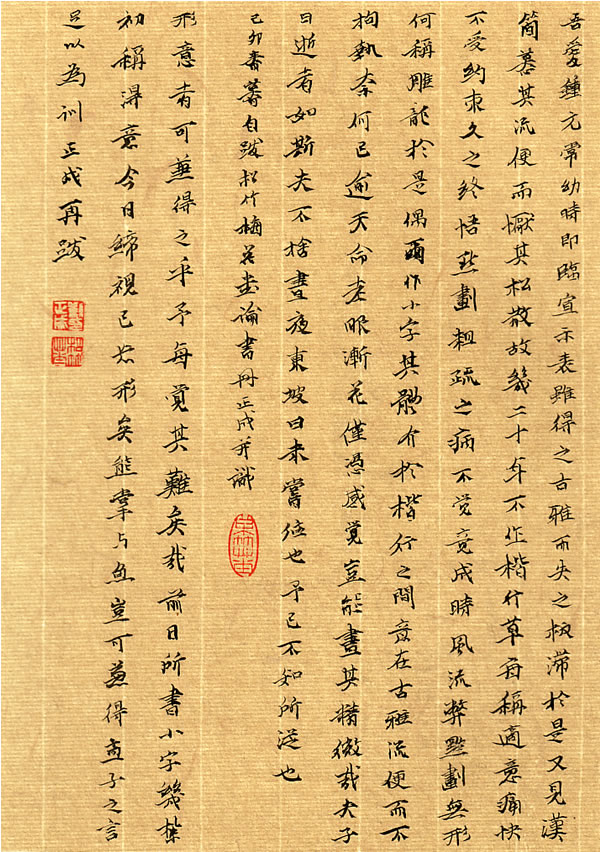 吾愛鍾元常幼時即臨宣示表雖得之古雅而失之板滯於是又見漢
簡慕其流便而懨其松散故幾二十年不作楷行草每稱適意痛快
不受約束久之終悟點劃粗疏之病不覺竟成時風流弊點劃無形
何稱雕龍於是偶爾作小字其體介於楷行之間意在古雅流便而不
拘執奈何已逾天命老眼漸花僅憑感覺豈能盡其精微哉夫子
曰逝者如斯夫不捨晝夜東坡曰未嘗往也予已不知所從也
己卯春暮自跋松竹梅花堂論書冊正成并識
形意者可兼得之乎予每覺其難矣哉前日所書小字幾紮
初稱得意今日締視已忘形矣熊掌与魚豈可兼得孟子之言
足以為訓正成再跋